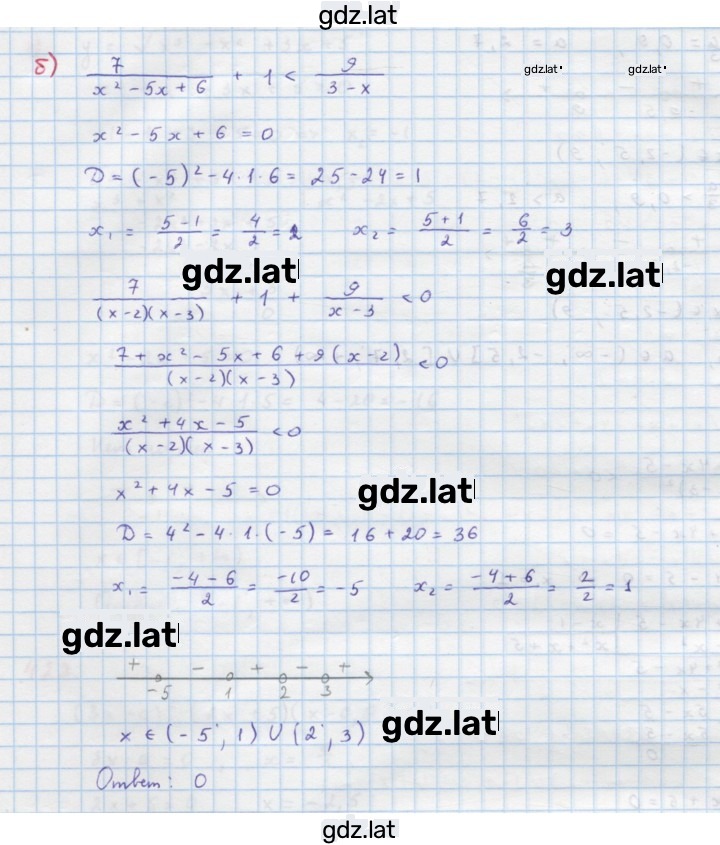 gdz.lat
б) 7/(x² - 5x + 6) + 1 < 9/(3 - x)
gdz.lat gdz.lat
x² - 5x + 6 = 0
D = (-5)² - 4·1·6 = 25 - 24 = 1
x₁ = (5-1)/2 = 4/2 = 2 x₂ = (5+1)/2 = 6/2 = 3
gdz.lat gdz.lat
7/((x-2)(x-3)) + 1 + 9/(x-3) < 0
(7 + x² - 5x + 6 + 9(x-2))/((x-2)(x-3)) < 0
(x² + 4x - 5)/((x-2)(x-3)) < 0
x² + 4x - 5 = 0
gdz.lat
D = 4² - 4·1·(-5) = 16 + 20 = 36
x₁ = (-4-6)/2 = -10/2 = -5 x₂ = (-4+6)/2 = 2/2 = 1
gdz.lat
+ - + - +
-5 1 2 3
x ∈ (-5; 1) ∪ (2; 3)
gdz.lat
Ответ: 0
gdz.lat